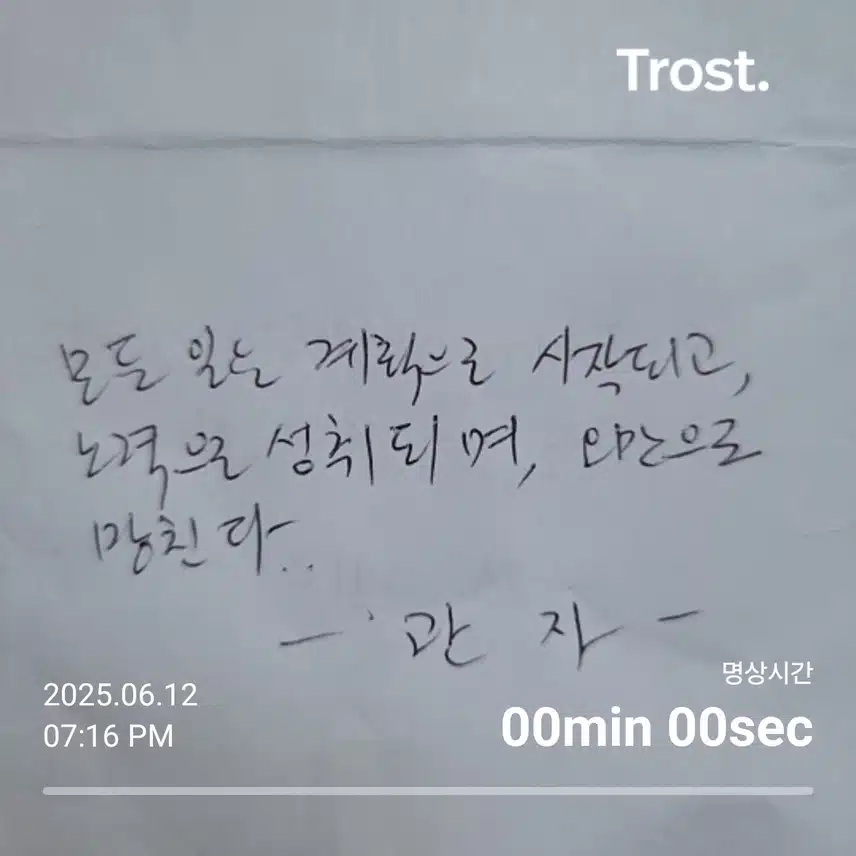 Trost.
모든 일는 계획으로 시작되고,
노력으로 성취되며, 오만으로
망친다..
- 관 자 -
명상시간
2025.06.12
00min 00sec
07:16 PM